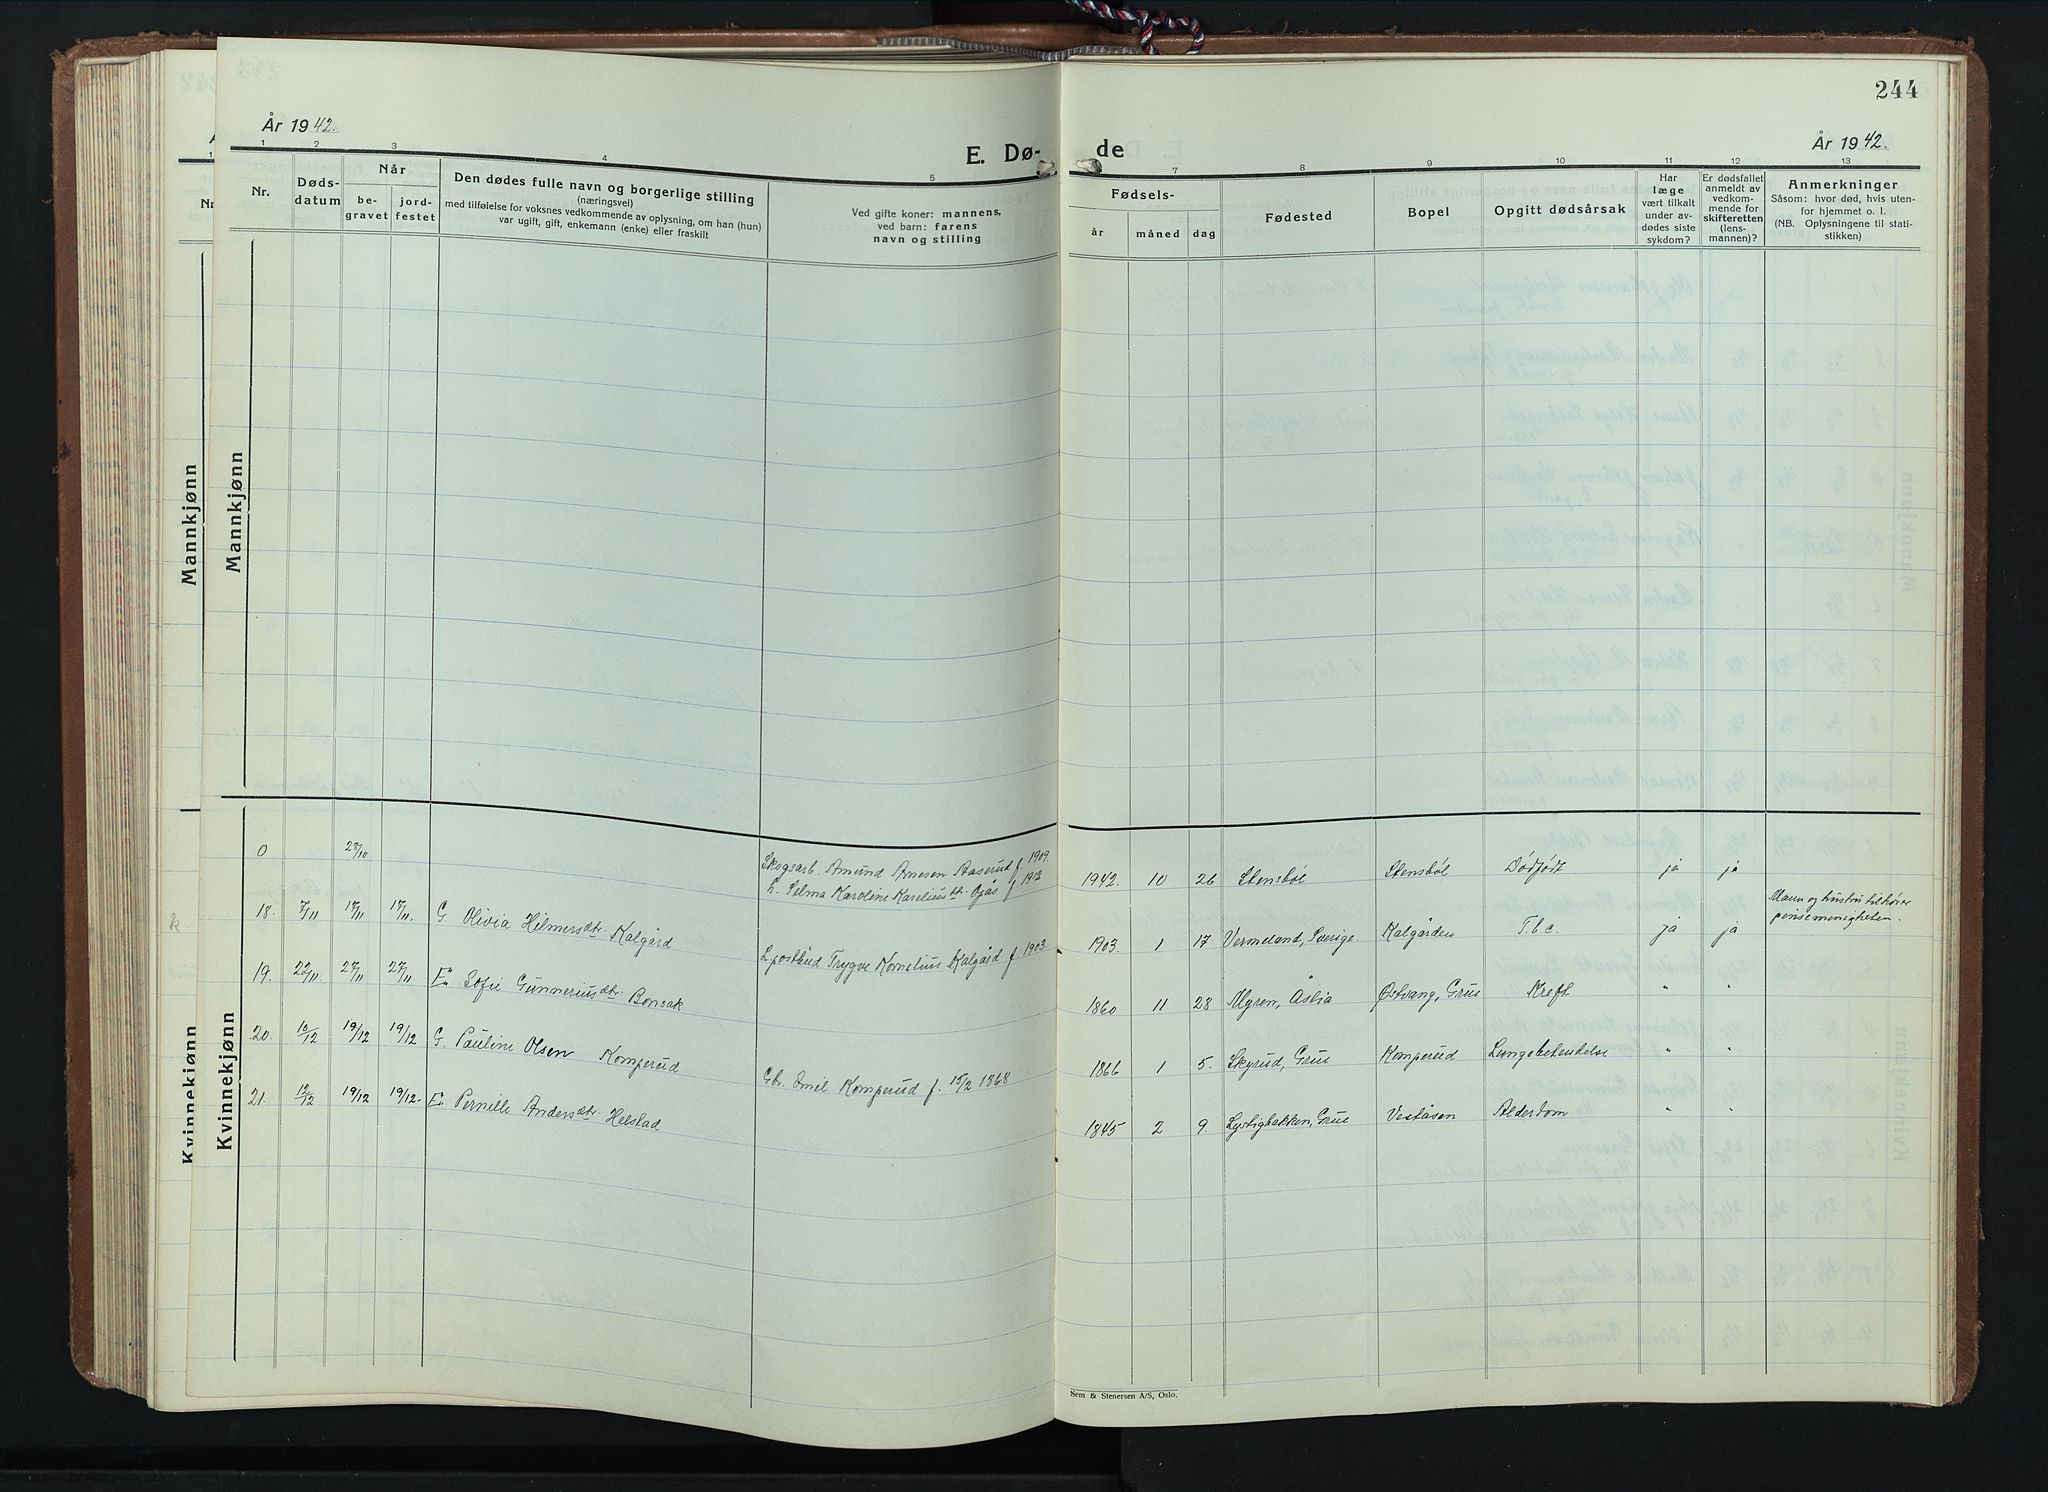 244
År 1942.
E. Dø-
de
År 1942.
1 2 3 4 5 7 8 9 10 11 12 13
Nr.
Døds-
datum
Når
be-
gravet
jord-
festet
Den dødes fulle navn og borgerlige stilling
(næringsvei)
med tilføielse for voksnes vedkommende av oplysning, om han (hun)
var ugift, gift, enkemann (enke) eller fraskilt
Ved gifte koner: mannens,
ved barn: farens
navn og stilling
Fødsels-
år måned dag
Fødested
Bopel
Opgitt dødsårsak
Har
læge
vært tilkalt
under av-
dødes siste
sykdom?
Er dødsfallet
anmeldt av
vedkom-
mende for
skifteretten
(lens-
mannen)?
Anmerkninger
Såsom: hvor død, hvis uten-
for hjemmet o. l.
(NB. Oplysningene til stati-
stikken)
Mannkjønn
Mannkjønn
Kvinnekjønn
Kvinnekjønn
0 Skogsarb. Amund Arnesen Aaserud f 1909.
h. Selma Karoline Kareliusdtr. Opås f 1912
1942. 10 26 Stensbøl Stensbøl Dødfødt ja ja
18. 7/11 17/11 17/11. G Olivia Hilmersdtr. Kalgård
Lpostbud Trygve Kornelius Kalgård f 1903
1903. 1 17 Vermeland, Sverige. Kalgården T.b.c. ja ja
Mann og hustru tilhører
pinsemenigheten.
19. 22/11. 27/11 27/11 En Sofie Gunneriusdtr. Bonsak
1860 11 28 Myren, Åslia Østvang, Grue Kreft " "
20. 10/12 19/12 19/12 G. Pauline Olsen Komperud
Gbr. Emil Komperud f. 15/2 1868
1866 1 5. Skyrud, Grue Komperud Lungebetendelse " "
21. 12/12 19/12 19/12. En Pernille Andersdtr. Helstad
1845 2 9. Lystigbakken, Grue Veståsen Alderdom " "
Sem & Stenersen A/S, Oslo.